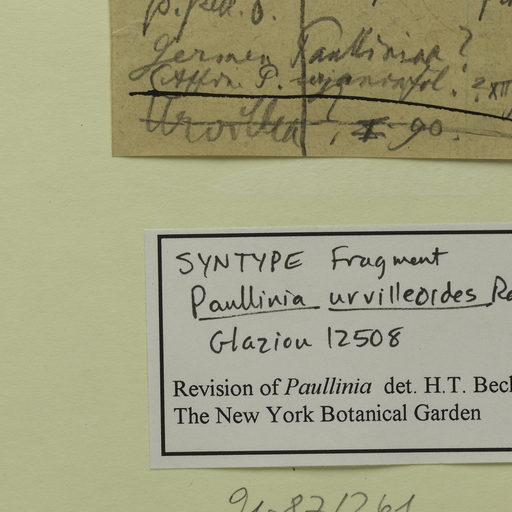 p. pell. 8.
germen Paullinia?
(Affin. P.
Urvillea, I. 90.
SYNTYPE Fragment
Paullinia urvilleoides Ra
Glaziou 12508
Revision of Paullinia det. H.T. Beck
The New York Botanical Garden